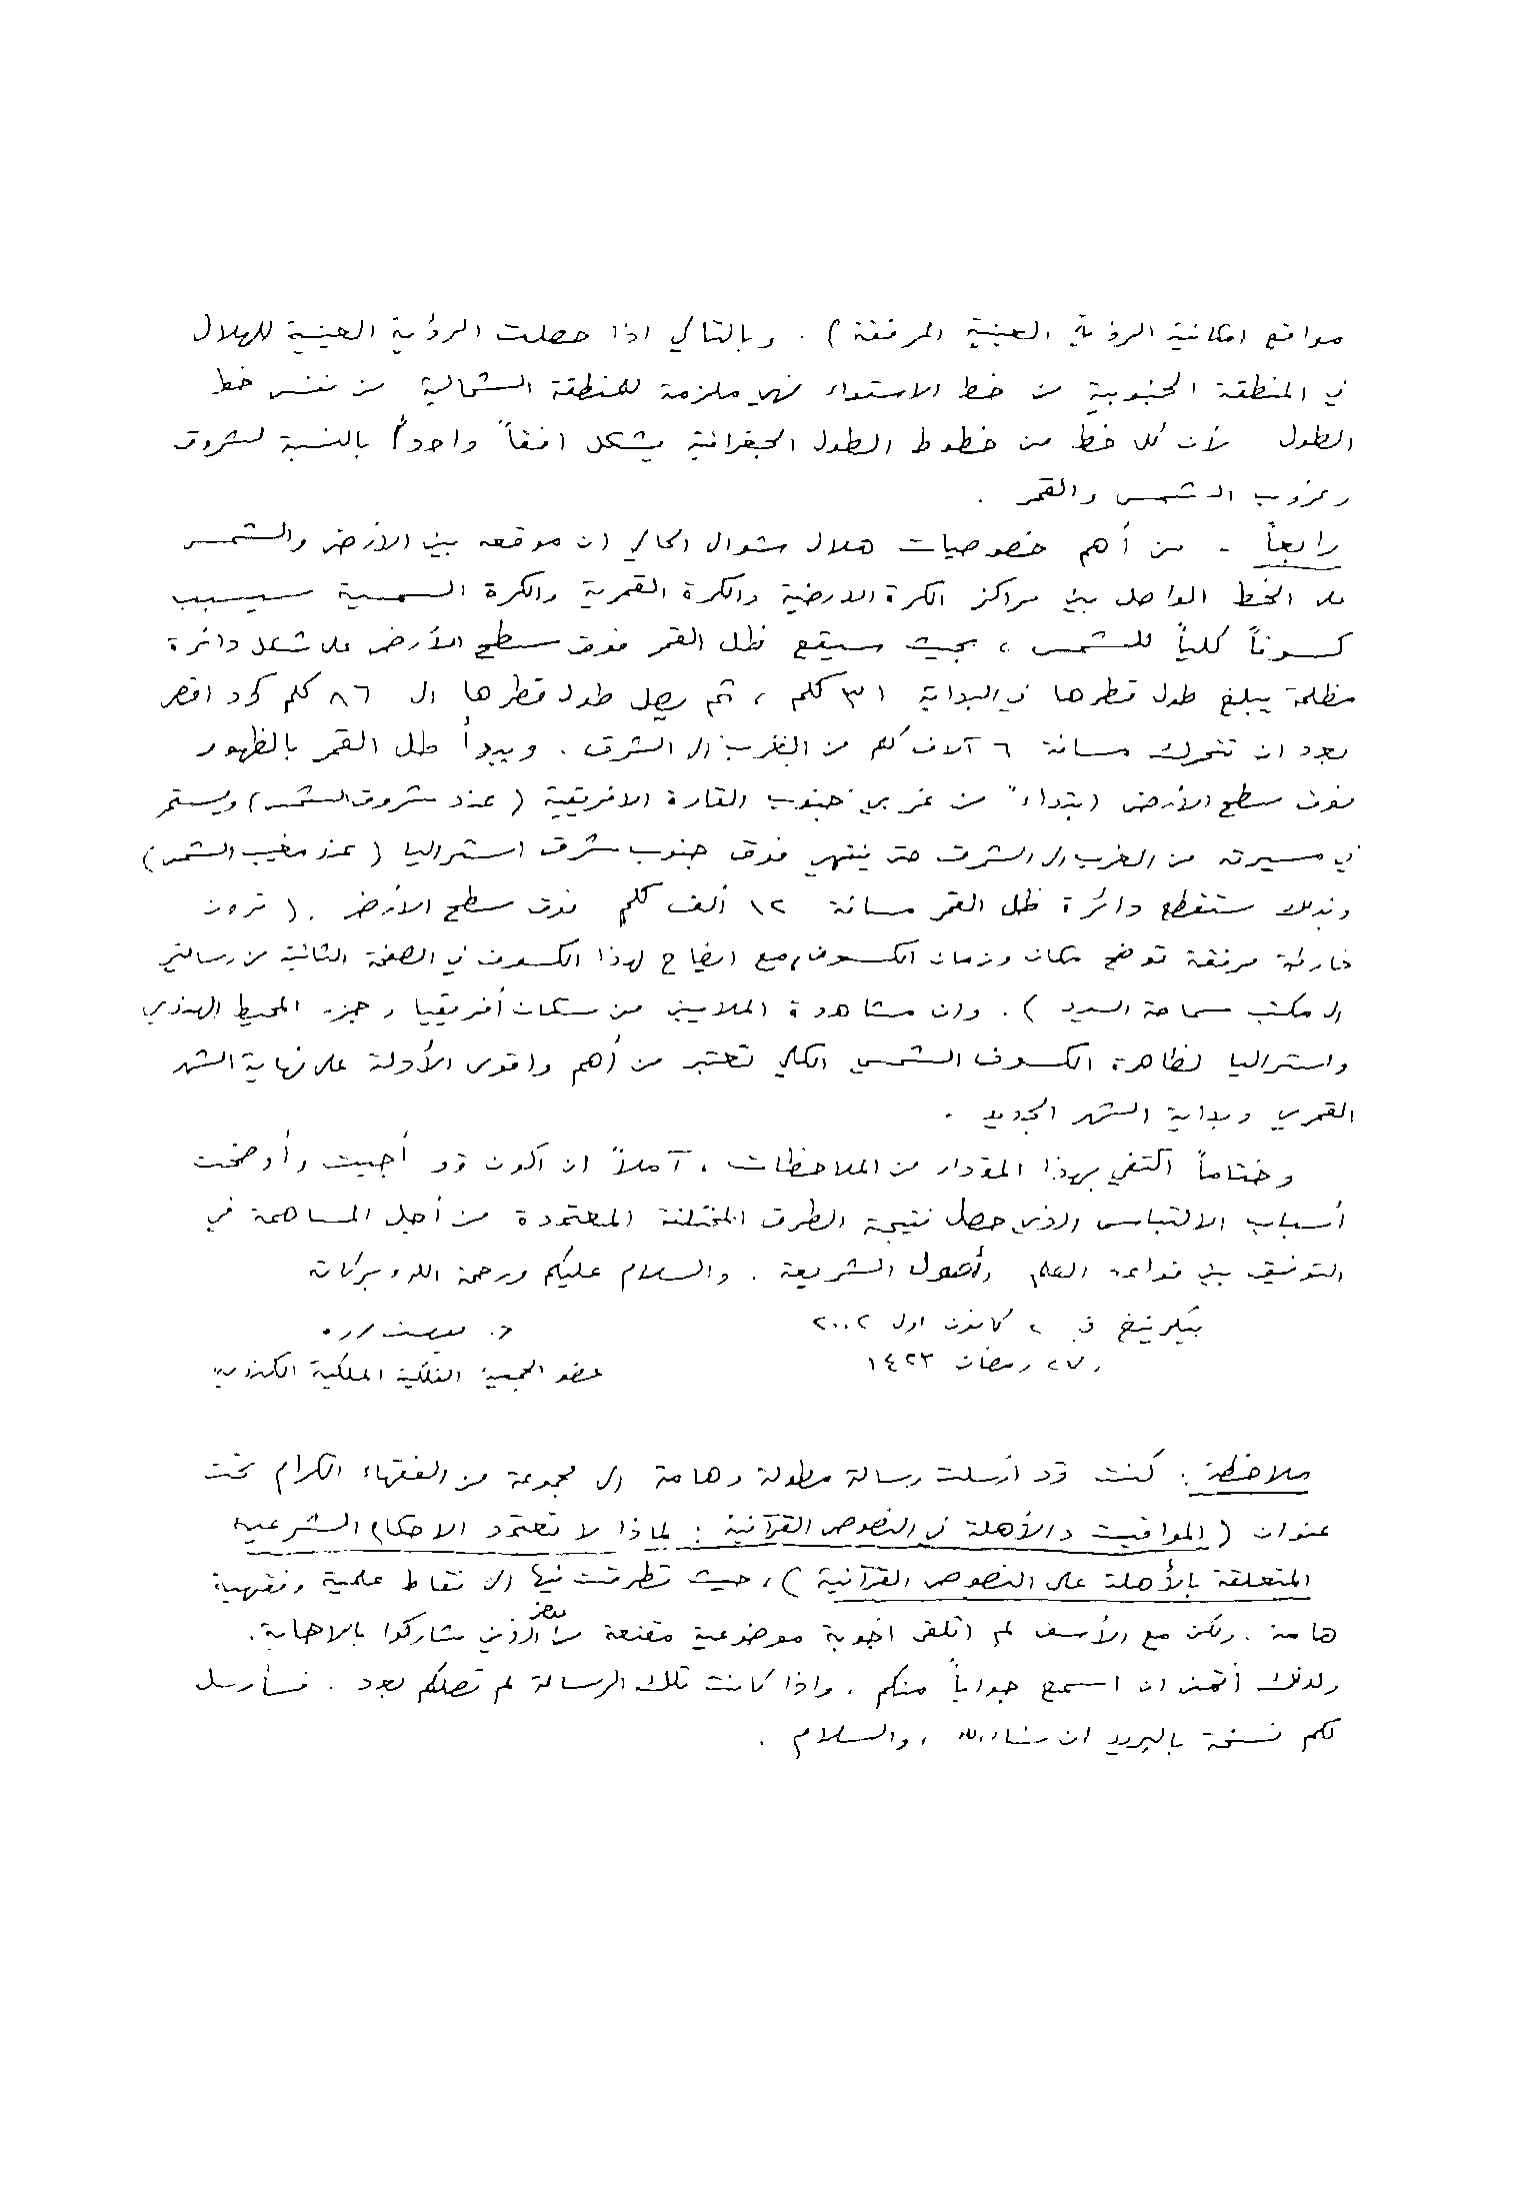 مواقع امكانية الرؤية العينية المرفقة ) . وبالتالي اذا حصلت الرؤية العينية للهلال
في المنطقة الجنوبية من خط الاستواء فهي ملزمة للمنطقة الشمالية من نفس خط
الطول لأن كل خط من خطوط الطول الجغرافية يشكل افقاً واحداً بالنسبة لشروق
وغروب الشمس والقمر .
رابعاً - من أهم خصوصيات هلال شوال الحالي ان موقعه بين الأرض والشمس
على الخط الواصل بين مراكز الكرة الارضية والكرة القمرية والكرة الشمسية سيسبب
كسوفاً كلياً للشمس ، بحيث سيقع ظل القمر فوق سطح الأرض على شكل دائرة
مظلمة يبلغ طول قطرها في البداية ٣١ كلم ، ثم يصل طول قطرها الى ٨٦ كلم كحد اقصى
بعد ان تتحرك مسافة ٦ آلاف كلم من الغرب الى الشرق . ويبدأ ظل القمر بالظهور
فوق سطح الأرض ابتداءً من غربي جنوب القارة الافريقية ( عند شروق الشمس ) ويستمر
في مسيرته من الغرب الى الشرق حتى ينتهي فوق جنوب شرق استراليا ( عند مغيب الشمس )
وبذلك ستقطع دائرة ظل القمر مسافة ١٢ ألف كلم فوق سطح الأرض . ( ترون
خارطة مرفقة توضح مكان وزمان الكسوف ، مع ايضاح لهذا الكسوف في الصفحة الثانية من رسالتي
الى مكتب سماحة السيد ) . وان مشاهدة الملايين من سكان أفريقيا وجزر المحيط الهندي
واستراليا لظاهرة الكسوف الشمسي الكلي تعتبر من أهم واقوى الأدلة على نهاية الشهر
القمري وبداية الشهر الجديد .
وختاماً اكتفي بهذا المقدار من الملاحظات ، آملاً ان اكون قد أجبت وأوضحت
أسباب الالتباس الذي حصل نتيجة الطرق المختلفة المعتمدة من أجل المساهمة في
التوفيق بين قواعد العلم وأصول الشريعة . والسلام عليكم ورحمة الله وبركاته
في ٢ كانون اول ٢٠٠٢ د. يوسف مروه
٢٧ رمضان ١٤٢٣ عضو الجمعية الفلكية الملكية الكندية
ملاحظة : كنت قد ارسلت رسالة مطولة وهامة الى مجموعة من الفقهاء الكرام تحت
عنوان ( المواقيت والأهلة في النصوص القرآنية : لماذا لا تعتمد الاحكام الشرعية
المتعلقة بالأهلة على النصوص القرآنية ) ، حيث تطرقت فيها الى نقاط علمية وفقهية
هامة . ولكن مع الأسف لم اتلق اجوبة موضوعية مقنعة من بعض الذين شاركوا بالاجابة .
ولذلك أتمنى ان اسمع جواباً منكم . واذا كانت تلك الرسالة لم تصلكم بعد . فسأرسل
لكم نسخة بالبريد ان شاء الله ، والسلام .